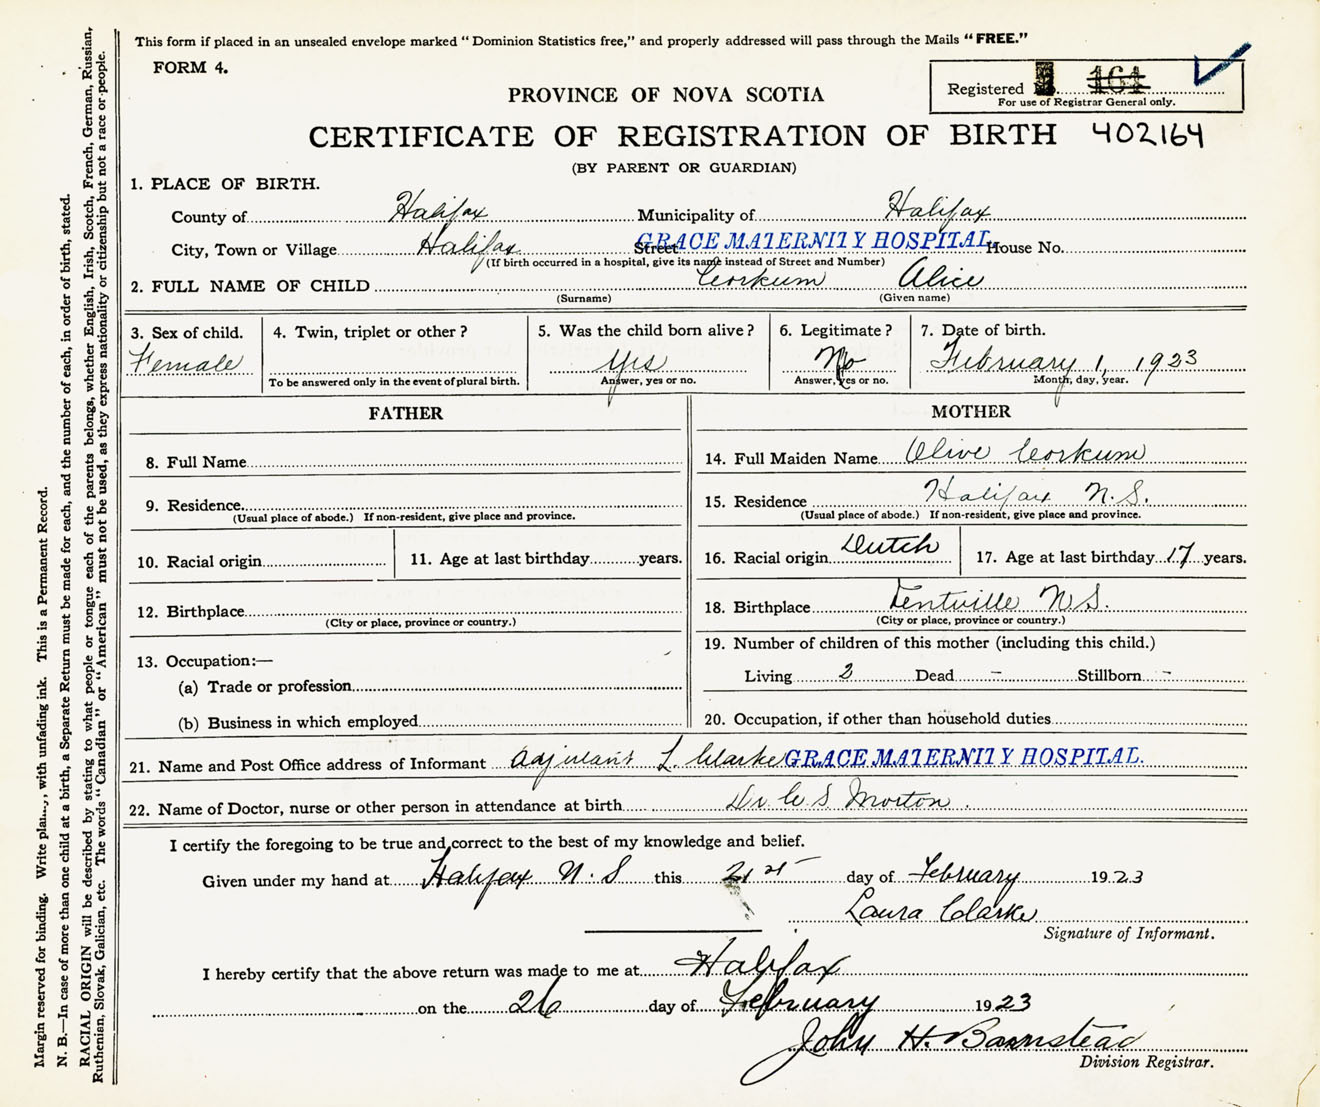 This form if placed in an unsealed envelope marked "Dominion Statistics free," and properly addressed will pass through the Mails "FREE."
FORM 4.
Registered 164
For use of Registrar General only.
PROVINCE OF NOVA SCOTIA
CERTIFICATE OF REGISTRATION OF BIRTH 402164
(BY PARENT OR GUARDIAN)
1. PLACE OF BIRTH.
County of Halifax Municipality of Halifax
City, Town or Village Halifax Street GRACE MATERNITY HOSPITAL. House No.
(If birth occurred in a hospital, give its name instead of Street and Number)
2. FULL NAME OF CHILD Corkum Alice
(Surname) (Given name)
3. Sex of child. 4. Twin, triplet or other? 5. Was the child born alive? 6. Legitimate? 7. Date of birth.
Female Yes No February 1, 1923
To be answered only in the event of plural birth. Answer, yes or no. Answer, yes or no. Month, day, year.
FATHER
8. Full Name
9. Residence
(Usual place of abode.) If non-resident, give place and province.
10. Racial origin 11. Age at last birthday years.
12. Birthplace
(City or place, province or country.)
13. Occupation:—
(a) Trade or profession
(b) Business in which employed
MOTHER
14. Full Maiden Name Olive Corkum
15. Residence Halifax N.S.
(Usual place of abode.) If non-resident, give place and province.
16. Racial origin Dutch 17. Age at last birthday 17 years.
18. Birthplace Kentville N.S.
(City or place, province or country.)
19. Number of children of this mother (including this child.)
Living 2 Dead – Stillborn –
20. Occupation, if other than household duties
21. Name and Post Office address of Informant Adjutant L. Clarke GRACE MATERNITY HOSPITAL.
22. Name of Doctor, nurse or other person in attendance at birth Dr C S Morton.
I certify the foregoing to be true and correct to the best of my knowledge and belief.
Given under my hand at Halifax N.S this 21st day of February 1923
Laura Clarke
Signature of Informant.
I hereby certify that the above return was made to me at Halifax
on the 26 day of February 1923
John H. Barnstead
Division Registrar.
Margin reserved for binding. Write with unfading ink. This is a Permanent Record.
N. B.—In case of more than one child at a birth, a Separate Return must be made for each, and the number of each, in order of birth, stated.
RACIAL ORIGIN will be described by stating to what people or tongue each of the parents belongs, whether English, Irish, Scotch, French, German, Russian,
Ruthenian, Slovak, Galician, etc. The words "Canadian" or "American" must not be used, as they express nationality or citizenship but not a race or people.